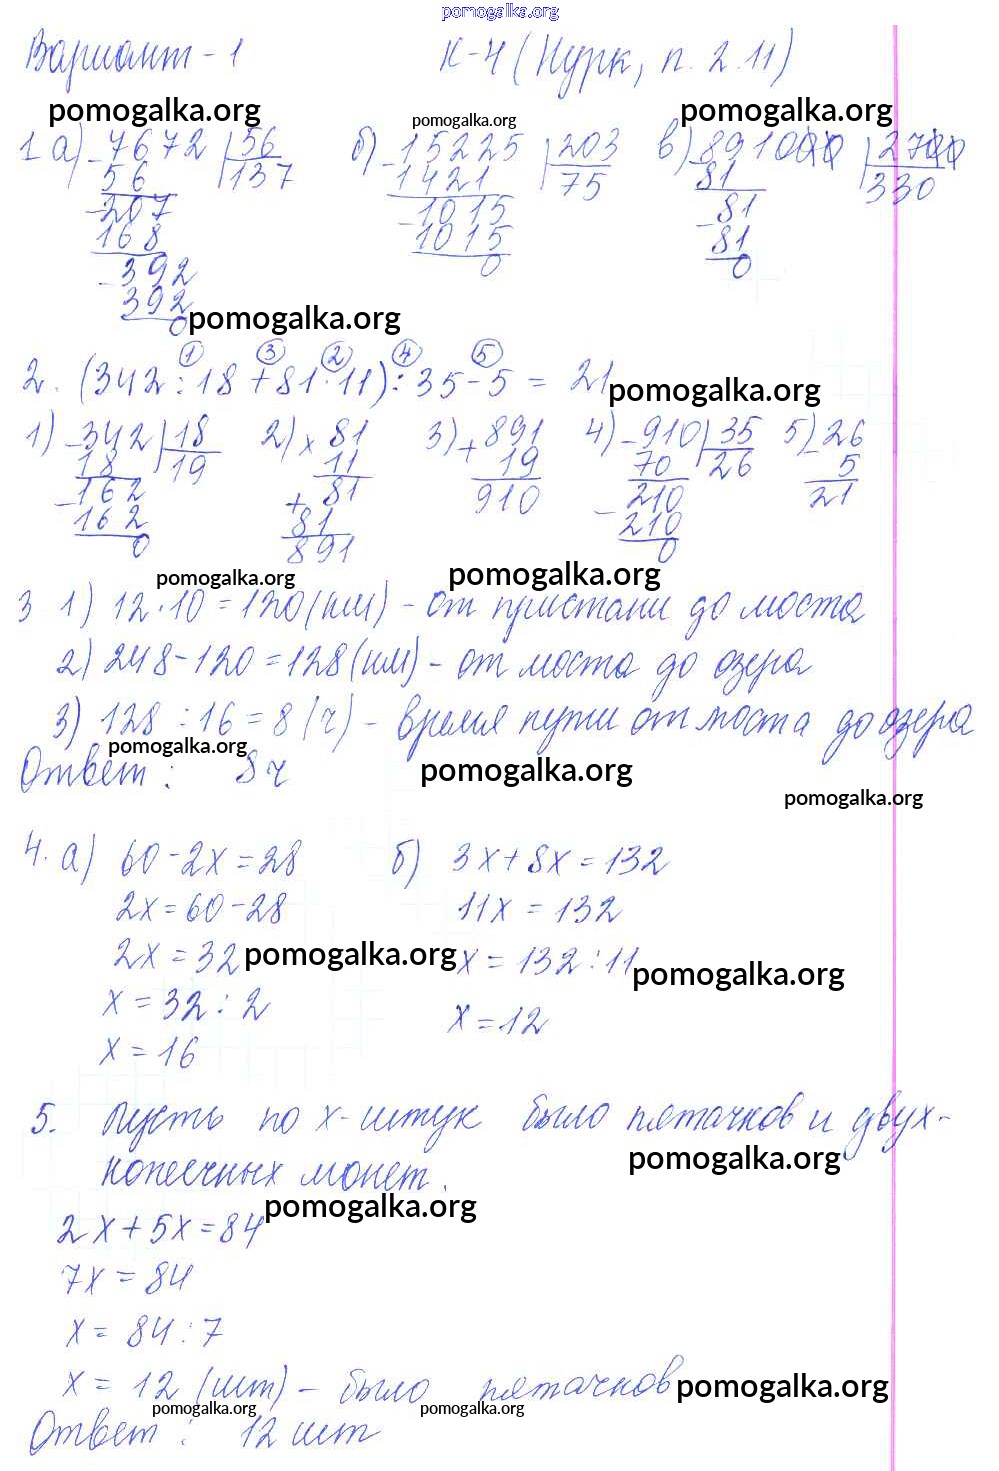 pomogalka.org
Вариант - 1 К-4 (Нурк, п. 2.11)
pomogalka.org pomogalka.org pomogalka.org
1 а) 7672 56 б) 15225 203 в) 891000 2700
56 137 1421 75 81 330
207 1015 81
168 1015 81
392 0 0
392
0 pomogalka.org
1 3 2 4 5
2. (342 : 18 + 81 · 11) : 35 - 5 = 21
pomogalka.org
1) 342 18 2) × 81 3) + 891 4) 910 35 5) 26
18 19 11 19 70 26 5
162 + 81 910 210 21
162 81 210
0 891 0
pomogalka.org pomogalka.org
3 1) 12 · 10 = 120 (км) - от пристани до моста
2) 248 - 120 = 128 (км) - от моста до озера
3) 128 : 16 = 8 (ч) - время пути от моста до озера
pomogalka.org
Ответ : 8 ч pomogalka.org
pomogalka.org
4. а) 60 - 2x = 28 б) 3x + 8x = 132
2x = 60 - 28 11x = 132
2x = 32 pomogalka.org x = 132 : 11 pomogalka.org
x = 32 : 2 x = 12
x = 16
5. Пусть по x - штук было пятачков и двух-
pomogalka.org
копеечных монет.
pomogalka.org
2x + 5x = 84
7x = 84
x = 84 : 7
x = 12 (шт) - было пятачков pomogalka.org
pomogalka.org pomogalka.org
Ответ : 12 шт